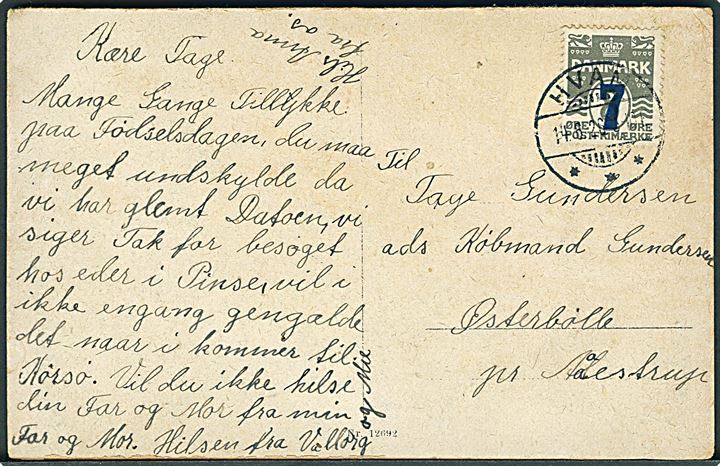 Kære Tage
Hils Anna
fra os.
Mange Gange Tillykke
paa Fødselsdagen, du maa
meget undskylde da
vi har glemt Datoen, vi
siger Tak for besøget
hos eder i Pinse, vil i
ikke engang gengælde
det naar i kommer til
Kørsø. Vil du ikke hilse
din Far og Mor fra min
Far og Mor. Hilsen fra Valborg
og Mie
Nr. 12692
DANMARK
7
ØRE ØRE
POSTFRIMÆRKE
Til
Tage Gundersen
ads Købmand Gundersen
Østerbølle
pr Aalestrup